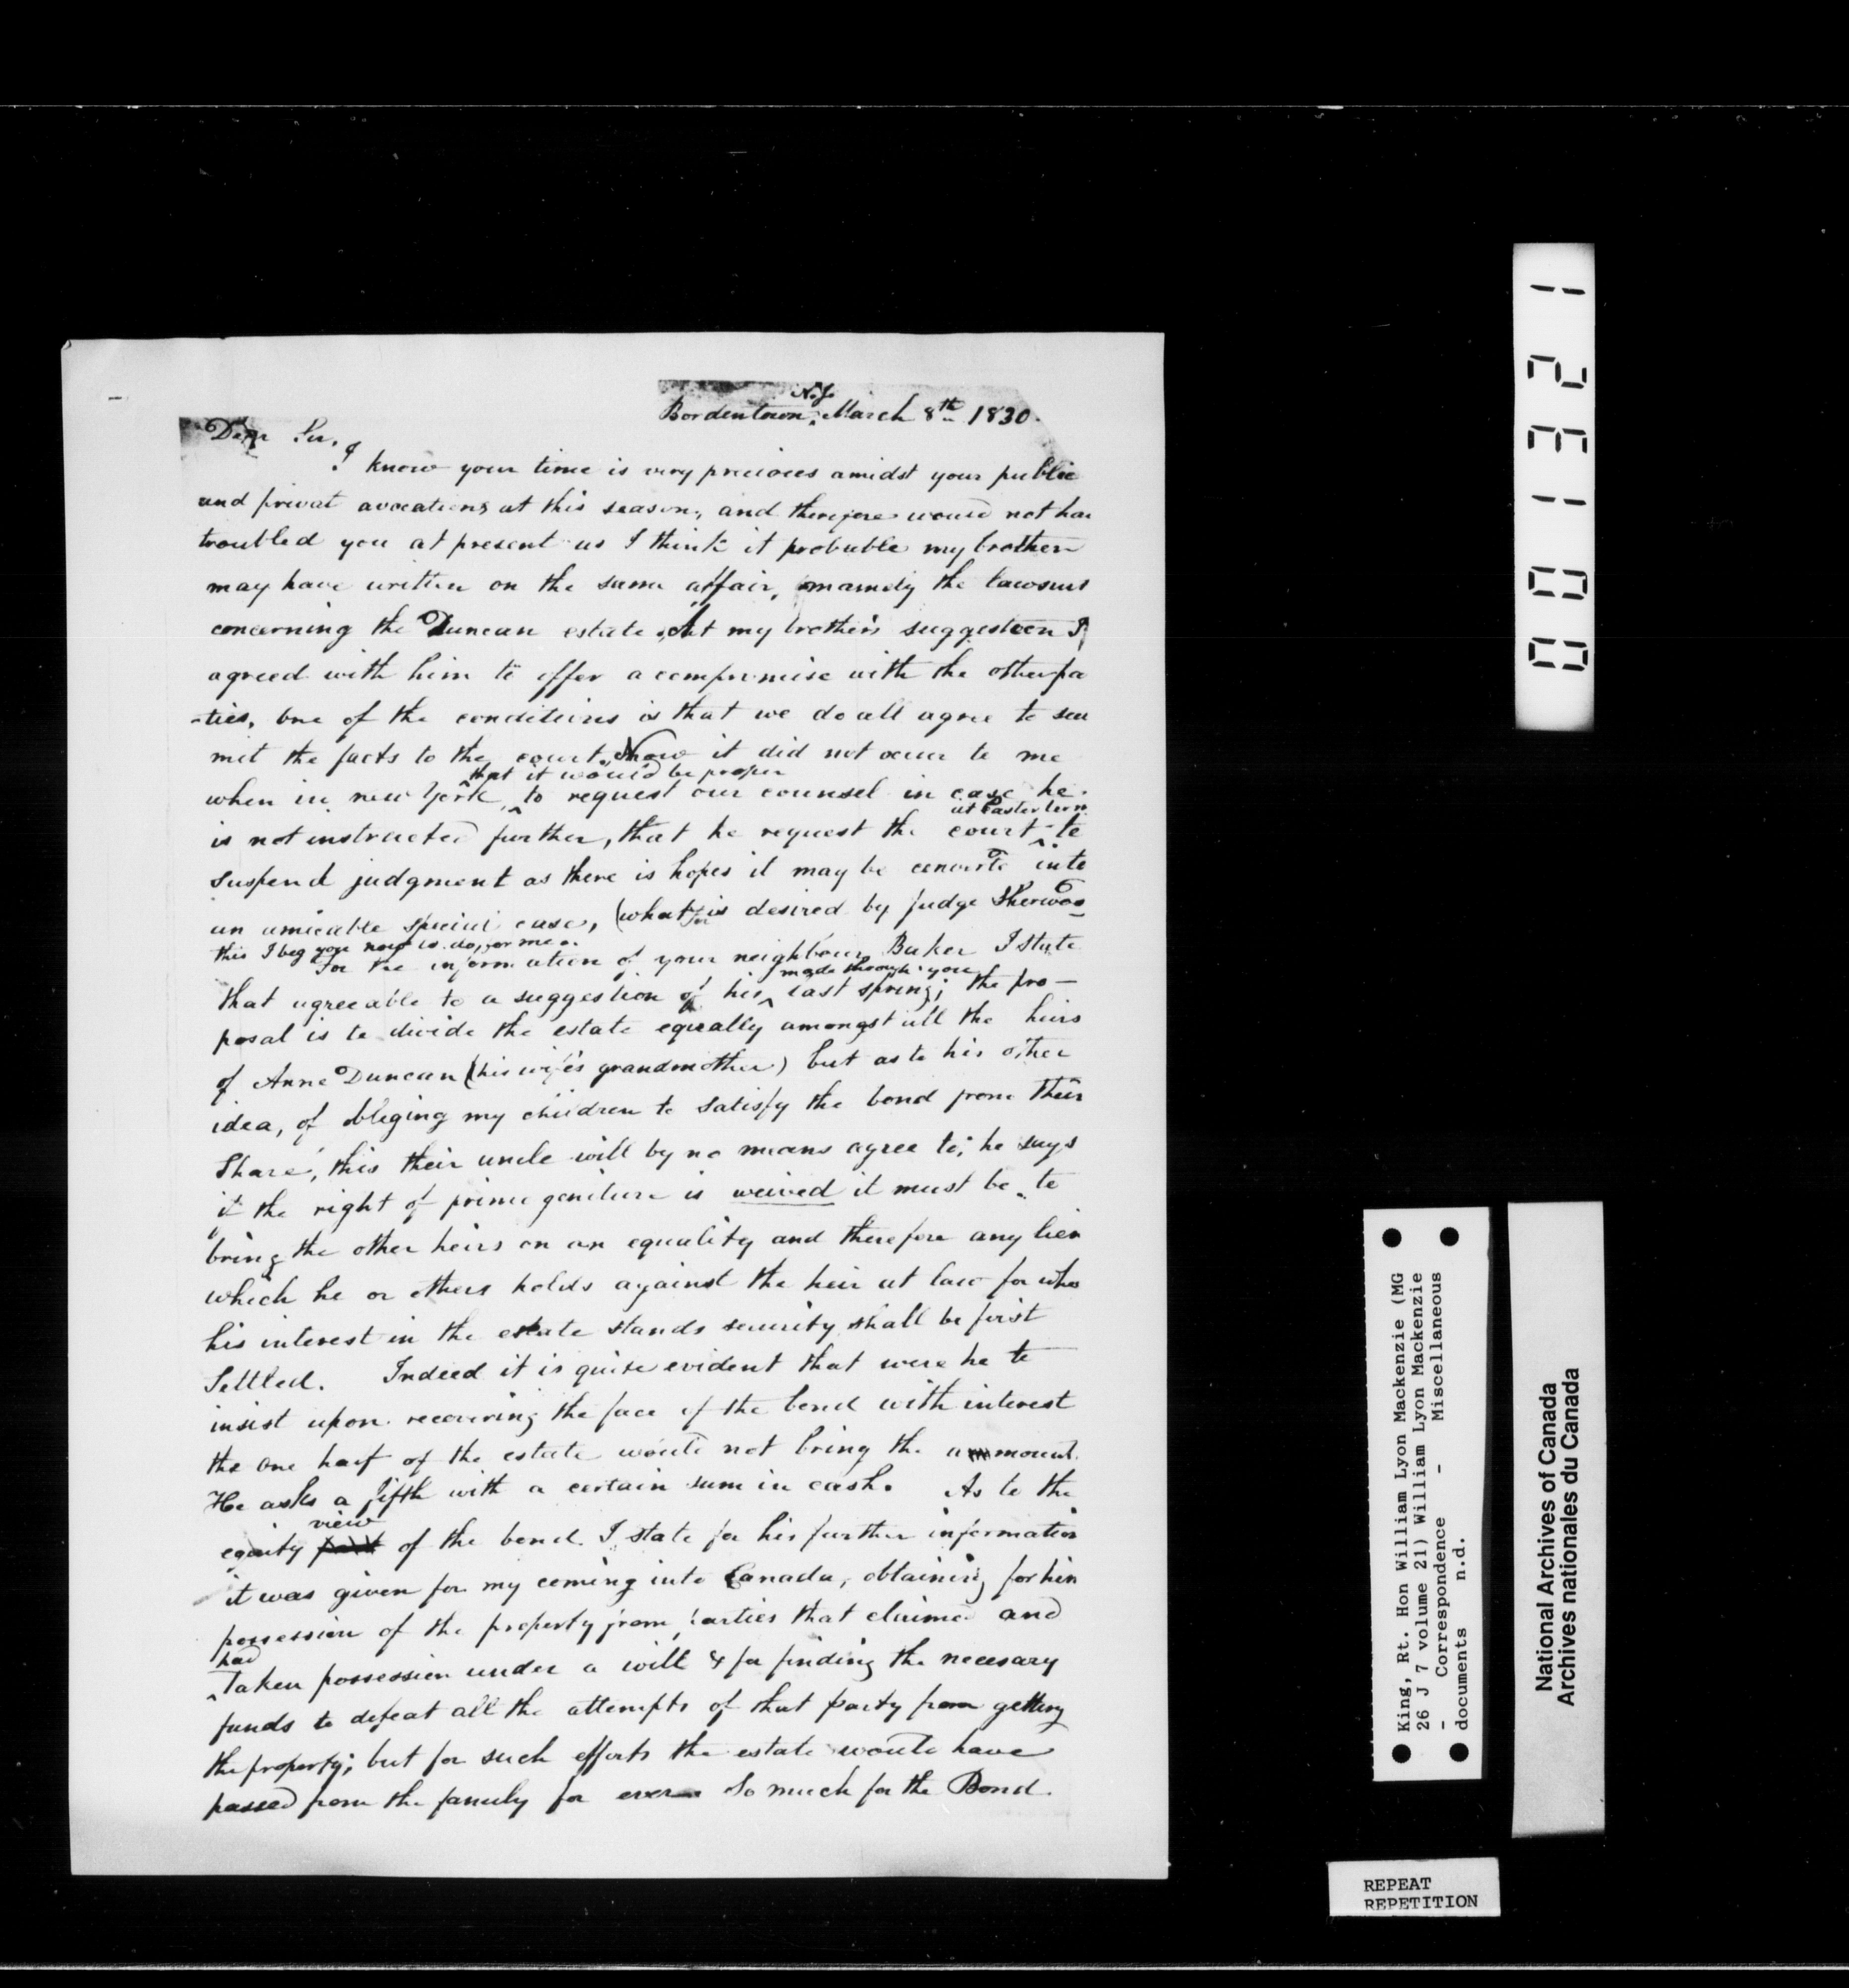 N.J.
Bordentown, March 8th 1830.
Dear Sir,
I know your time is very precious amidst your public
and privat avocations at this season, and therefore would not ha
troubled you at present as I think it probable my brother
may have written on the same affair, namely the lawsuit
concerning the Duncan estate. At my brother's suggestion I
agreed with him to offer a compromise with the other pa
-ties, one of the conditions is that we do all agree to su
mit the facts to the court. Now it did not occur to me
that it would be proper
when in new York, to request our counsel in case he
at Easter term
is not instructed further, that he request the court to
suspend judgment as there is hopes it may be converted into
an amicable special case, (what is desired by judge Sherwood
this I beg you now to do, for me.
For the information of your neighbour Baker I state
made through you
that agreeable to a suggestion of his last spring; the pro-
posal is to divide the estate equally amongst all the heirs
of Anne Duncan (his wife's grandmother) but as to his other
idea, of obleging my children to satisfy the bond from their
Share, this their uncle will by no means agree to; he says
if the right of primogeniture is weived it must be to
bring the other heirs on an equality and therefore any lien
which he or others holds against the heir at law for who
his interest in the estate stands security shall be first
Settled. Indeed it is quite evident that were he to
insist upon recovering the face of the bond with interest
the one half of the estate would not bring the ammount.
He asks a fifth with a certain sum in cash. As to the
view
equity of the bond. I state for his further information
it was given for my coming into Canada, obtaining for him
possession of the property from parties that claimed and
had
taken possession under a will & for finding the necesary
funds to defeat all the attempts of that party from getting
the property; but for such efforts the estate would have
passed from the family for ever. So much for the Bond.
001321
King, Rt. Hon William Lyon Mackenzie (MG
26 J 7 volume 21) William Lyon Mackenzie
- Correspondence - Miscellaneous
documents n.d.
National Archives of Canada
Archives nationales du Canada
REPEAT
REPETITION